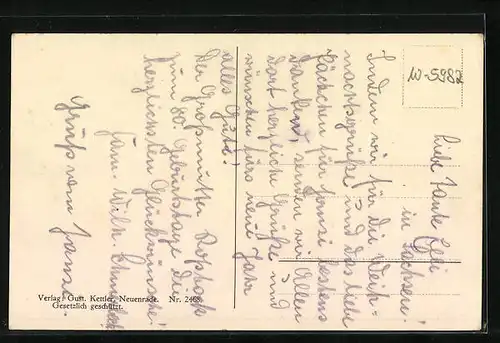 W-5982
Liebe Tante Elli
in Sachsen!
Indem wir für die Weih-
nachtsgrüße und das liebe
Päckchen für Jonni bestens
danken, senden wir Allen
dort herzliche Grüße und
wünschen fürs neue Jahr
alles Gute.
Der Großmutter
zum 80. Geburtstage die
herzlichsten Glückwünsche!
Fam. Wilh.
Gruß von
Verlag: Gust. Kettler, Neuenrade. Nr. 2468
Gesetzlich geschützt.